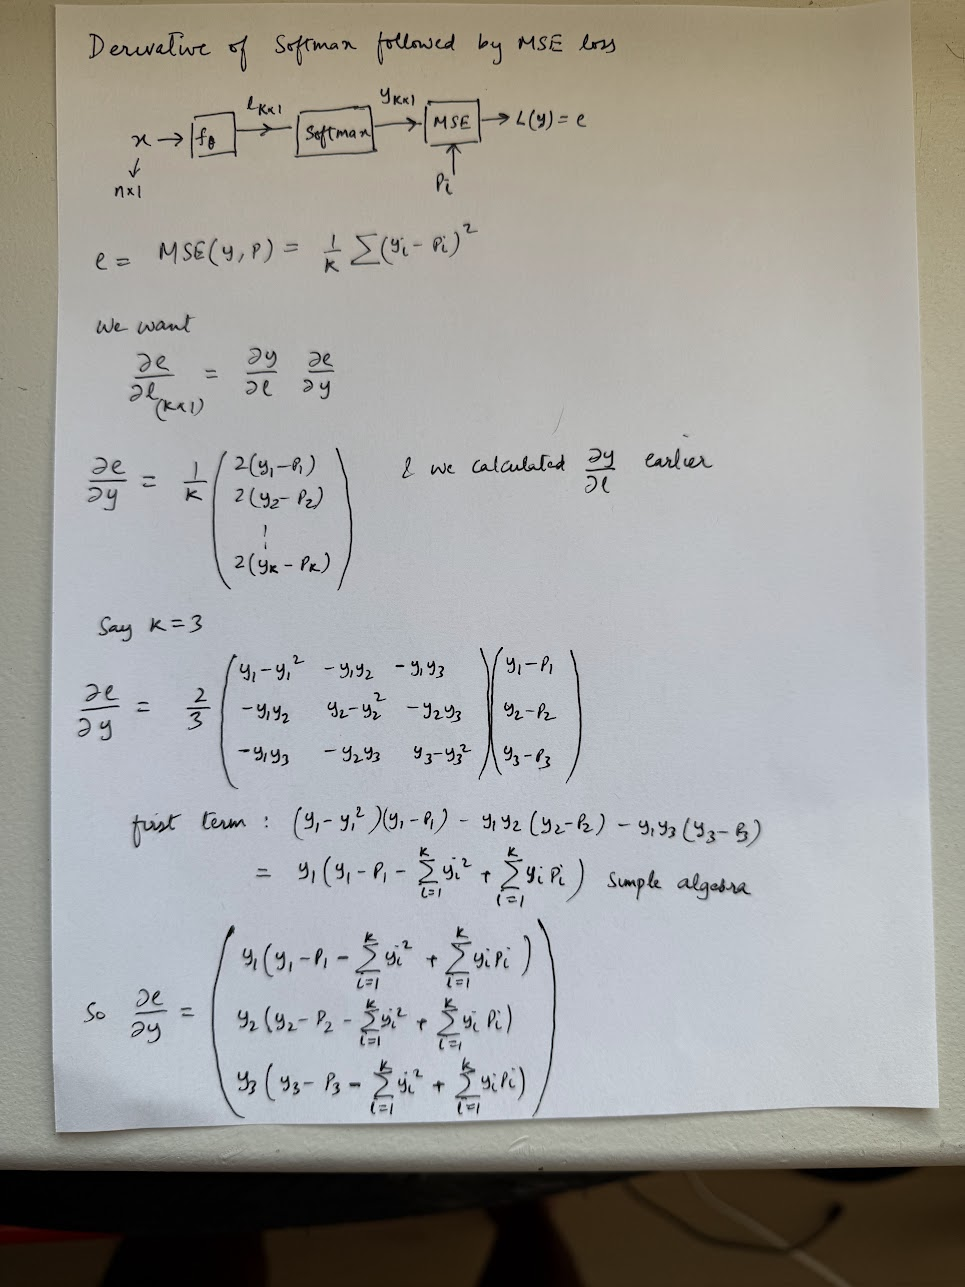 Derivative of Softmax followed by MSE loss
x → f_θ l_{K×1} → Softmax y_{K×1} → MSE → L(y) = e
↓ ↑
n×1 P_i
e = MSE(y, P) = 1/K Σ(y_i - P_i)^2
We want
∂e/∂l_{(K×1)} = ∂y/∂l ∂e/∂y
∂e/∂y = 1/K ( 2(y_1-P_1) 2(y_2-P_2) ⋮ 2(y_K-P_K) ) & we calculated ∂y/∂l earlier
Say K=3
∂e/∂y = 2/3 ( y_1-y_1^2 -y_1y_2 -y_1y_3 ) ( y_1-P_1 )
-y_1y_2 y_2-y_2^2 -y_2y_3 y_2-P_2
-y_1y_3 -y_2y_3 y_3-y_3^2 y_3-P_3
first term : (y_1-y_1^2)(y_1-P_1) - y_1y_2(y_2-P_2) - y_1y_3(y_3-P_3)
= y_1(y_1-P_1 - Σ_{i=1}^K y_i^2 + Σ_{i=1}^K y_i P_i) simple algebra
y_1(y_1-P_1 - Σ_{i=1}^K y_i^2 + Σ_{i=1}^K y_i P_i)
So ∂e/∂y = y_2(y_2-P_2 - Σ_{i=1}^K y_i^2 + Σ_{i=1}^K y_i P_i)
y_3(y_3-P_3 - Σ_{i=1}^K y_i^2 + Σ_{i=1}^K y_i P_i)